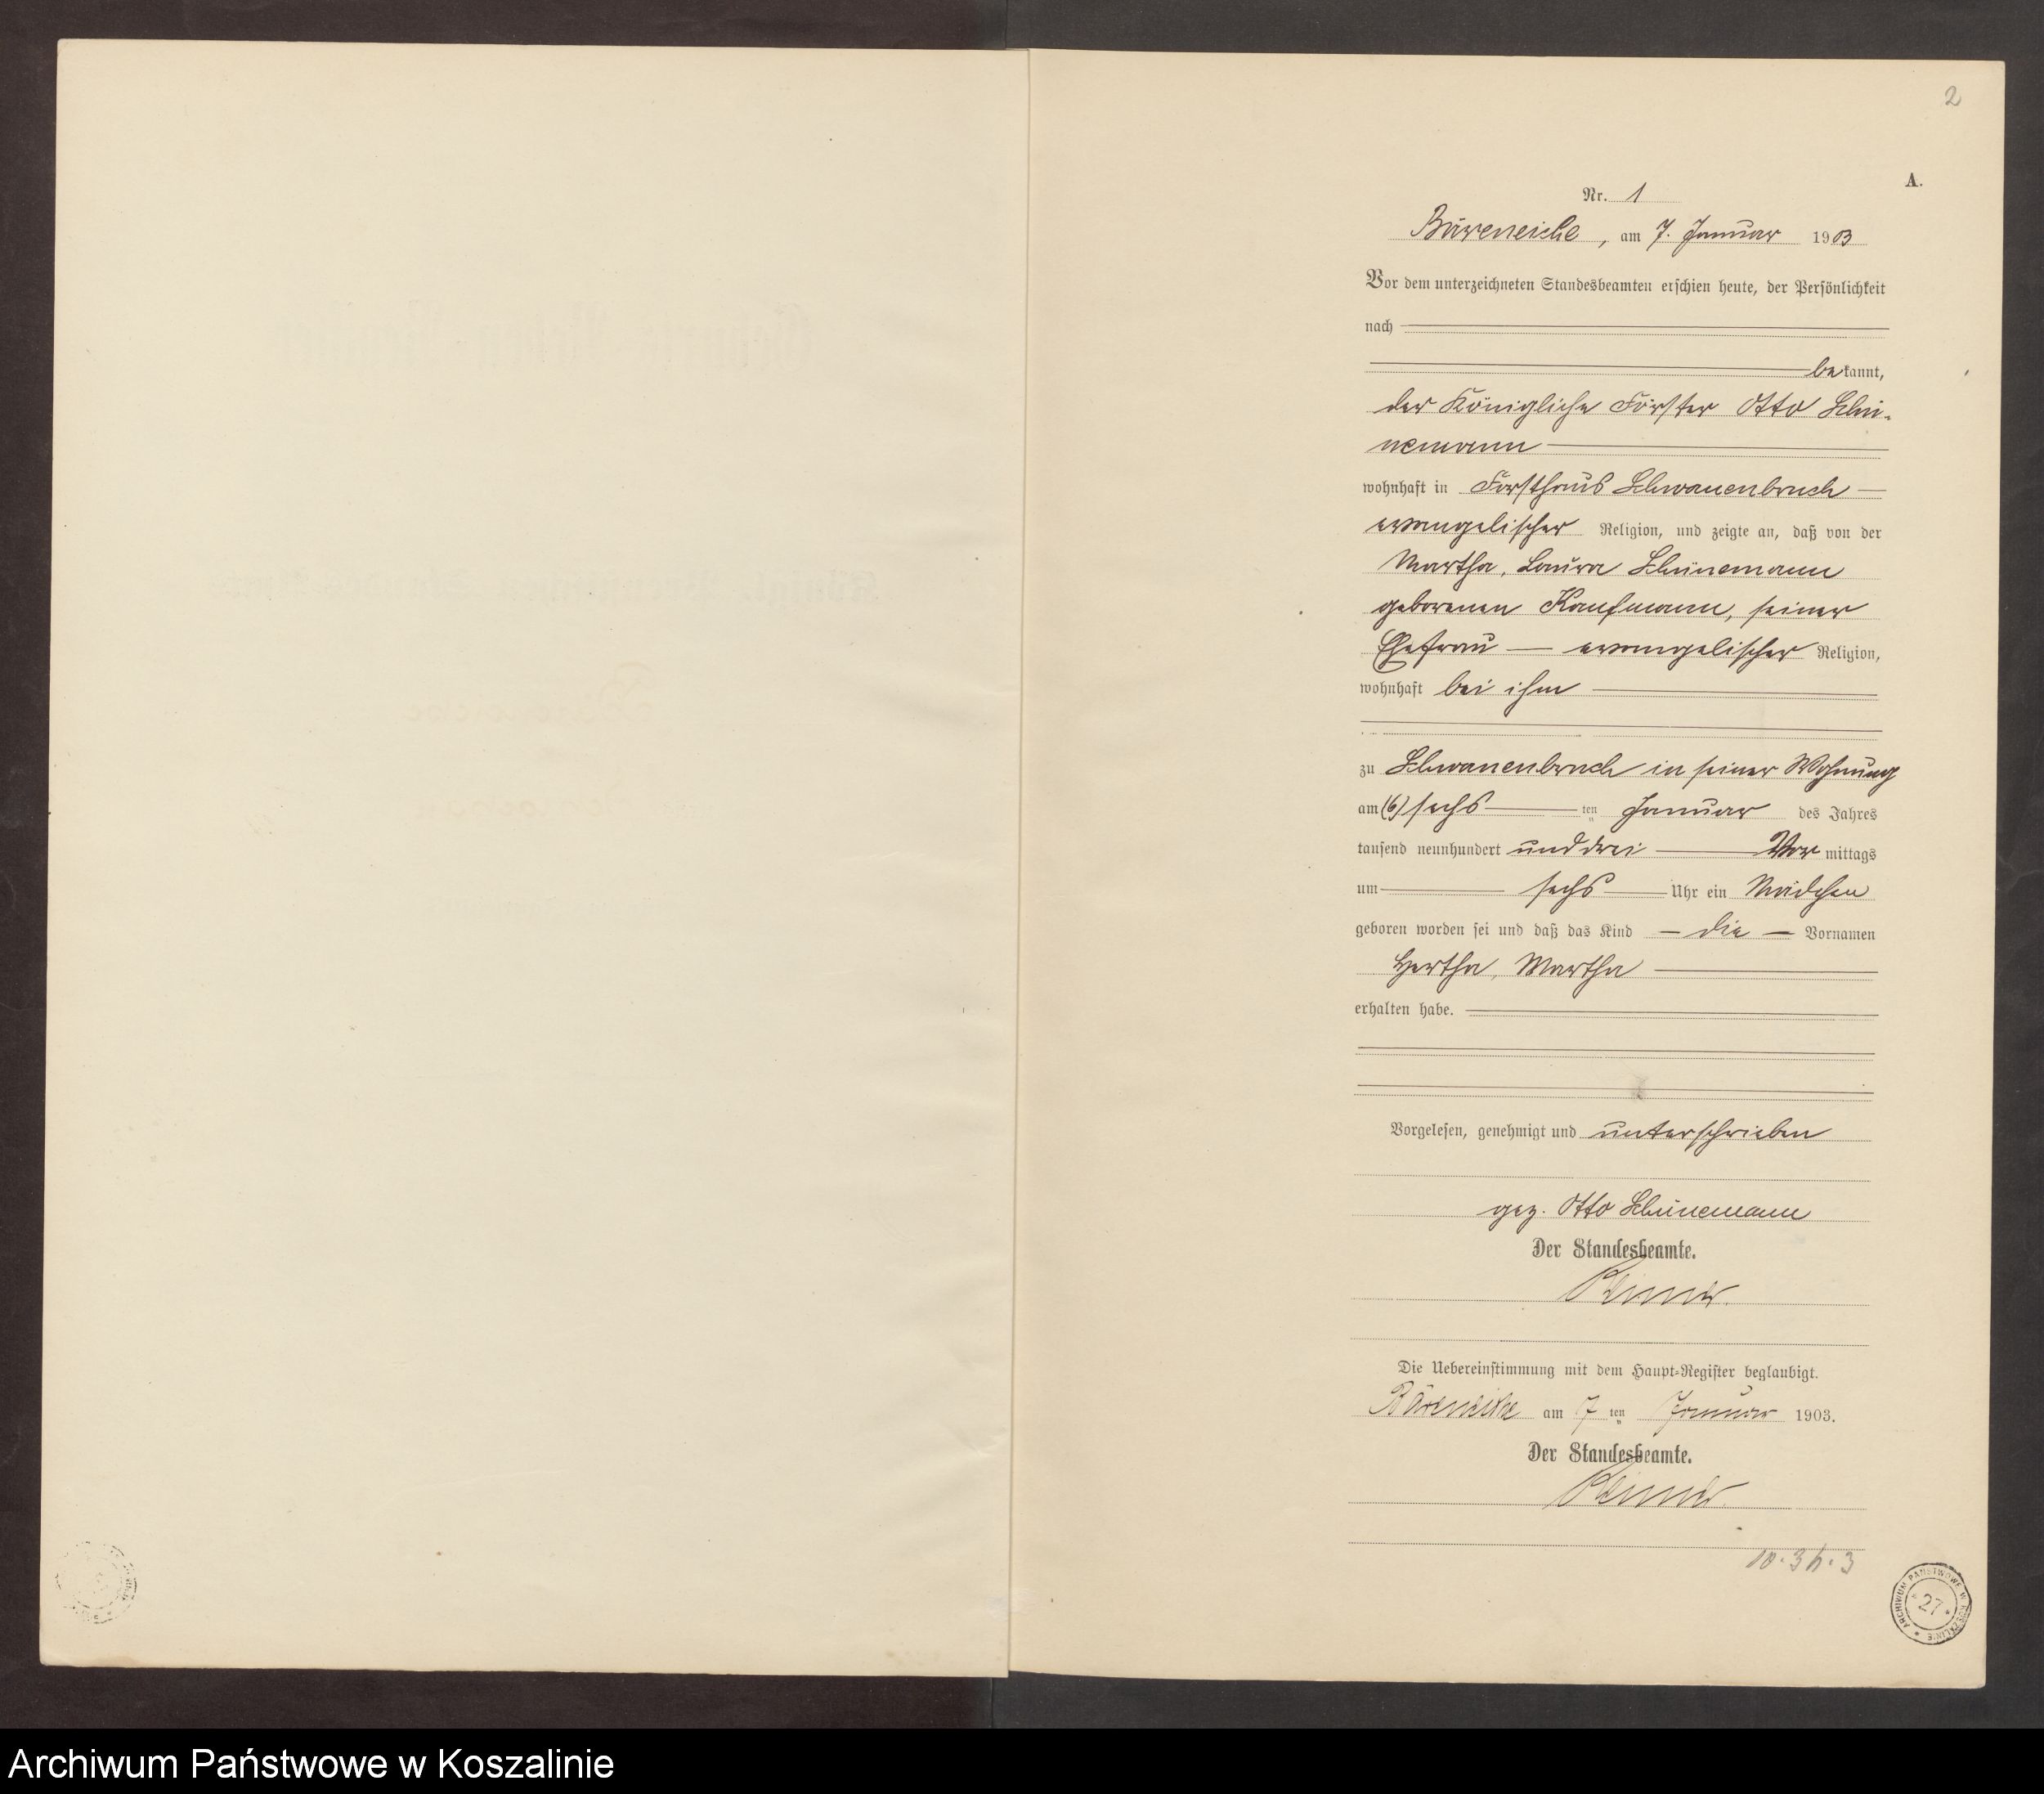 2
A.
Nr. 1
Bäreneiche, am 7. Januar 1903
Vor dem unterzeichneten Standesbeamten erschien heute, der Persönlichkeit
nach
bekannt,
der Königliche Förster Otto Schü-
nemann
wohnhaft in Forsthaus Schwanenbruch
evangelischer Religion, und zeigte an, daß von der
Martha, Laura Schünemann
geborenen Kaufmann, seiner
Ehefrau — evangelischer Religion,
wohnhaft bei ihm
zu Schwanenbruch in seiner Wohnung
am (6) sechs ten Januar des Jahres
tausend neunhundert und drei Vor mittags
um sechs Uhr ein Mädchen
geboren worden sei und daß das Kind — die — Vornamen
Hertha, Martha
erhalten habe.
Vorgelesen, genehmigt und unterschrieben
gez. Otto Schünemann
Der Standesbeamte.
Die Uebereinstimmung mit dem Haupt-Register beglaubigt.
Bäreneiche am 7 ten Januar 1903.
Der Standesbeamte.
ARCHIWUM PAŃSTWOWE W KOSZALINIE
* 27 *
Archiwum Państwowe w Koszalinie